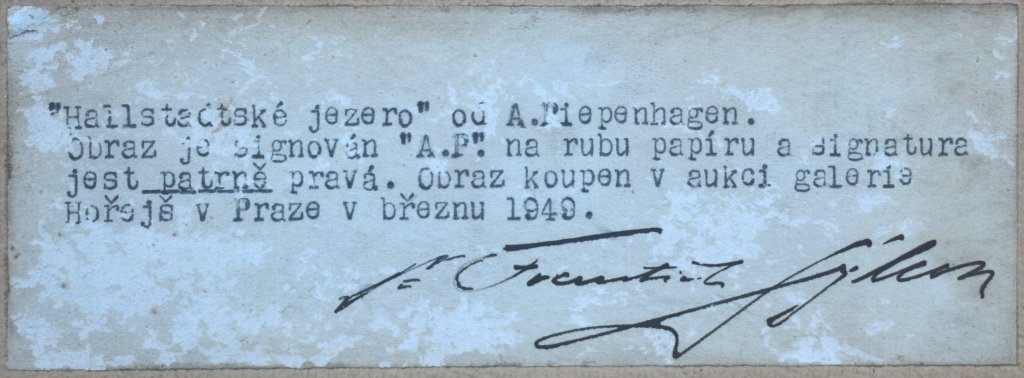 "Hallstadtské jezero" od A.Piepenhagen.
Obraz je signován "A.P". na rubu papíru a signatura
jest patrně pravá. Obraz koupen v aukci galerie
Hořejš v Praze v březnu 1949.
Dr František